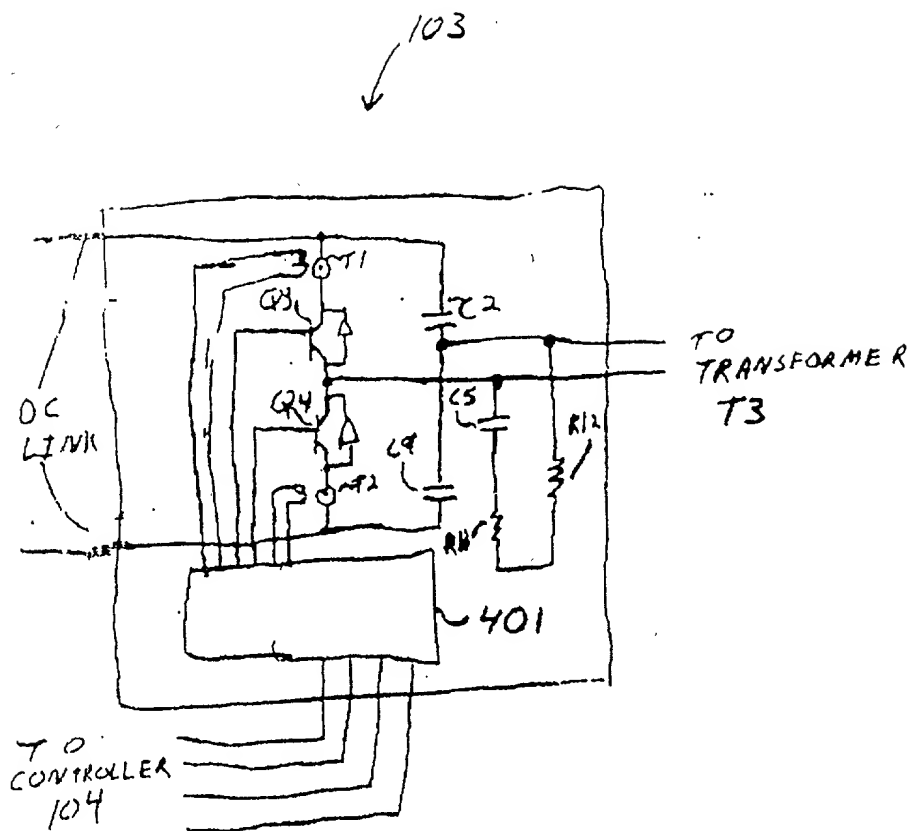 103
T1
Q3
C2
TO
TRANSFORMER
T3
Q4
C5
R12
DC
LINK
T2
C4
R11
401
TO
CONTROLLER
104